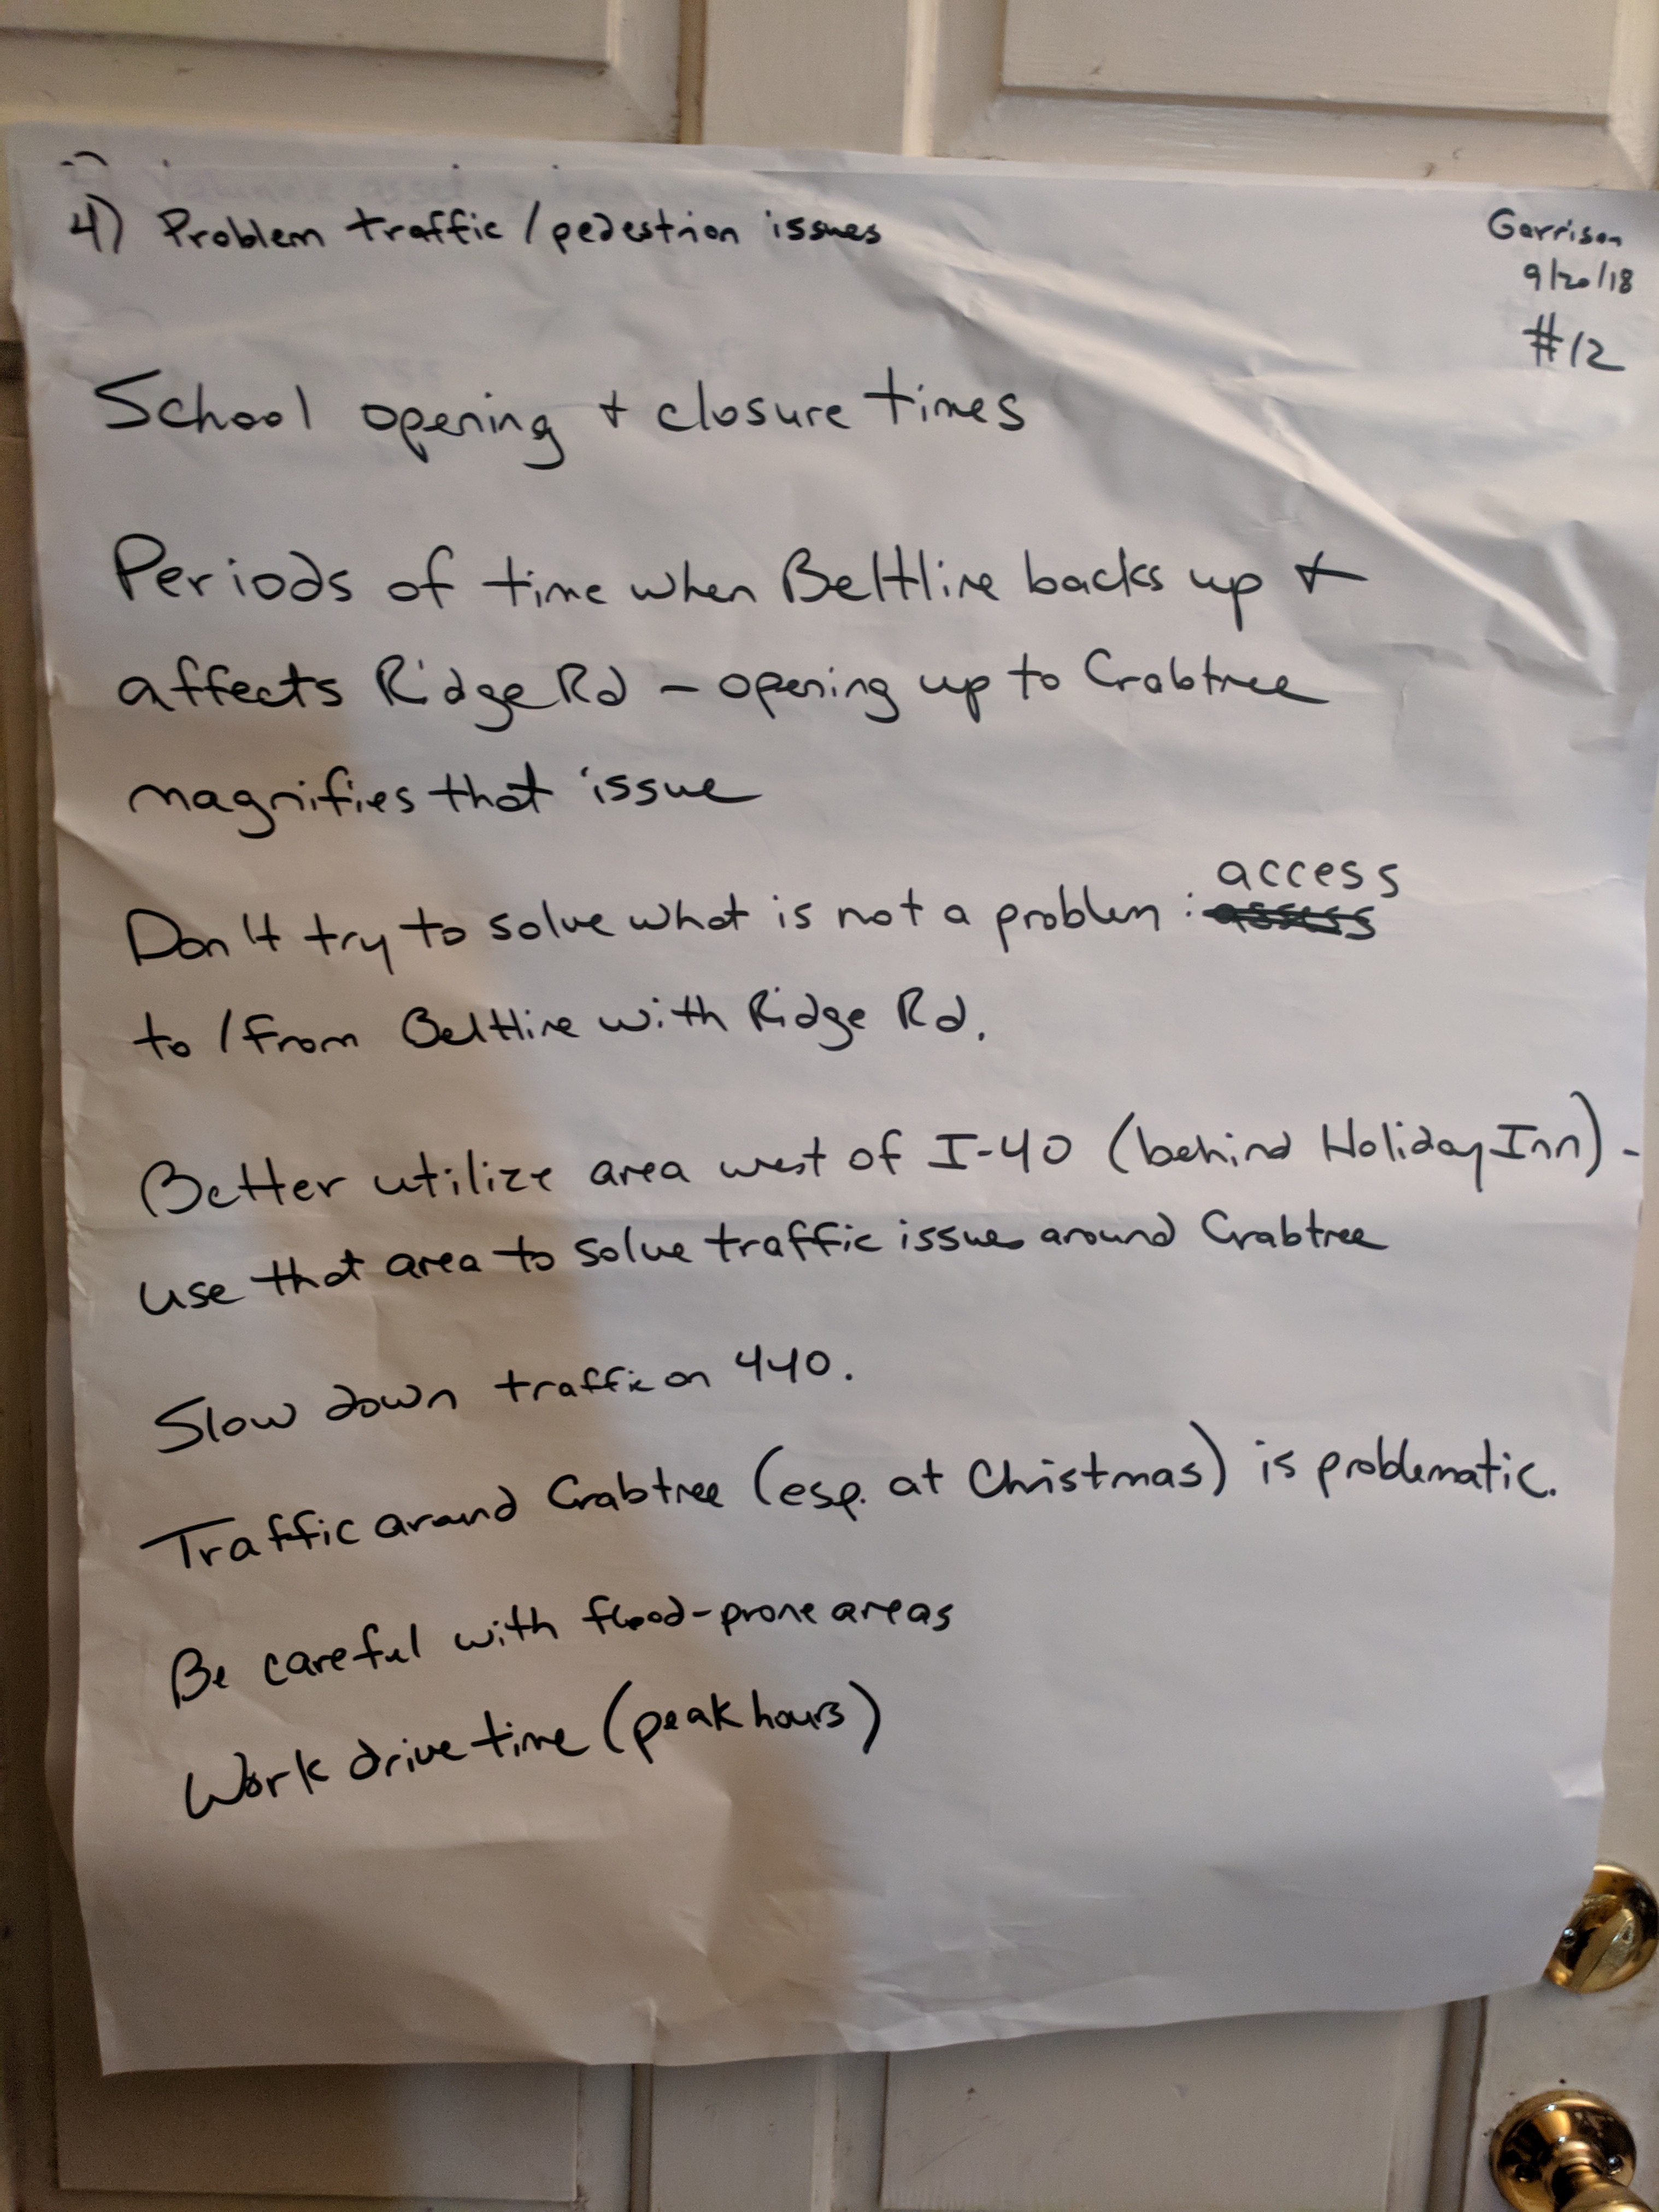 4) Problem traffic/pedestrian issues
Garrison
9/20/18
#12
School opening + closure times
Periods of time when Beltline backs up +
affects Ridge Rd - opening up to Crabtree
magnifies that issue
access
Don't try to solve what is not a problem:
to/from Beltline with Ridge Rd.
Better utilize area west of I-40 (behind Holiday Inn) -
use that area to solve traffic issues around Crabtree
Slow down traffic on 440.
Traffic around Crabtree (esp. at Christmas) is problematic.
Be careful with flood-prone areas
Work drive time (peak hours)